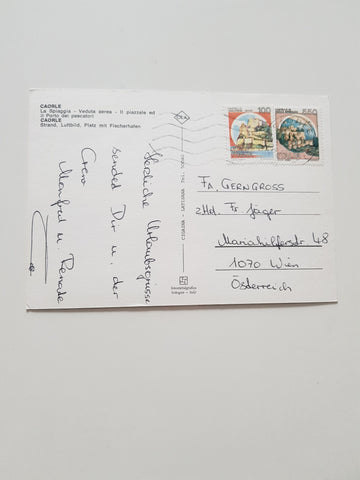 CAORLE
La Spiaggia - Veduta aerea - Il piazzale ed
il Porto dei pescatori
CAORLE
Strand, Luftbild, Platz mit Fischerhafen
Herzliche Urlaubsgrüsse
sendet Dir u. der
Crew
Manfred u. Renate
100
FA. GERNGROSS
z.Hd. Fr. Jäger
Mariahilferstr. 48
1070 Wien
Österreich